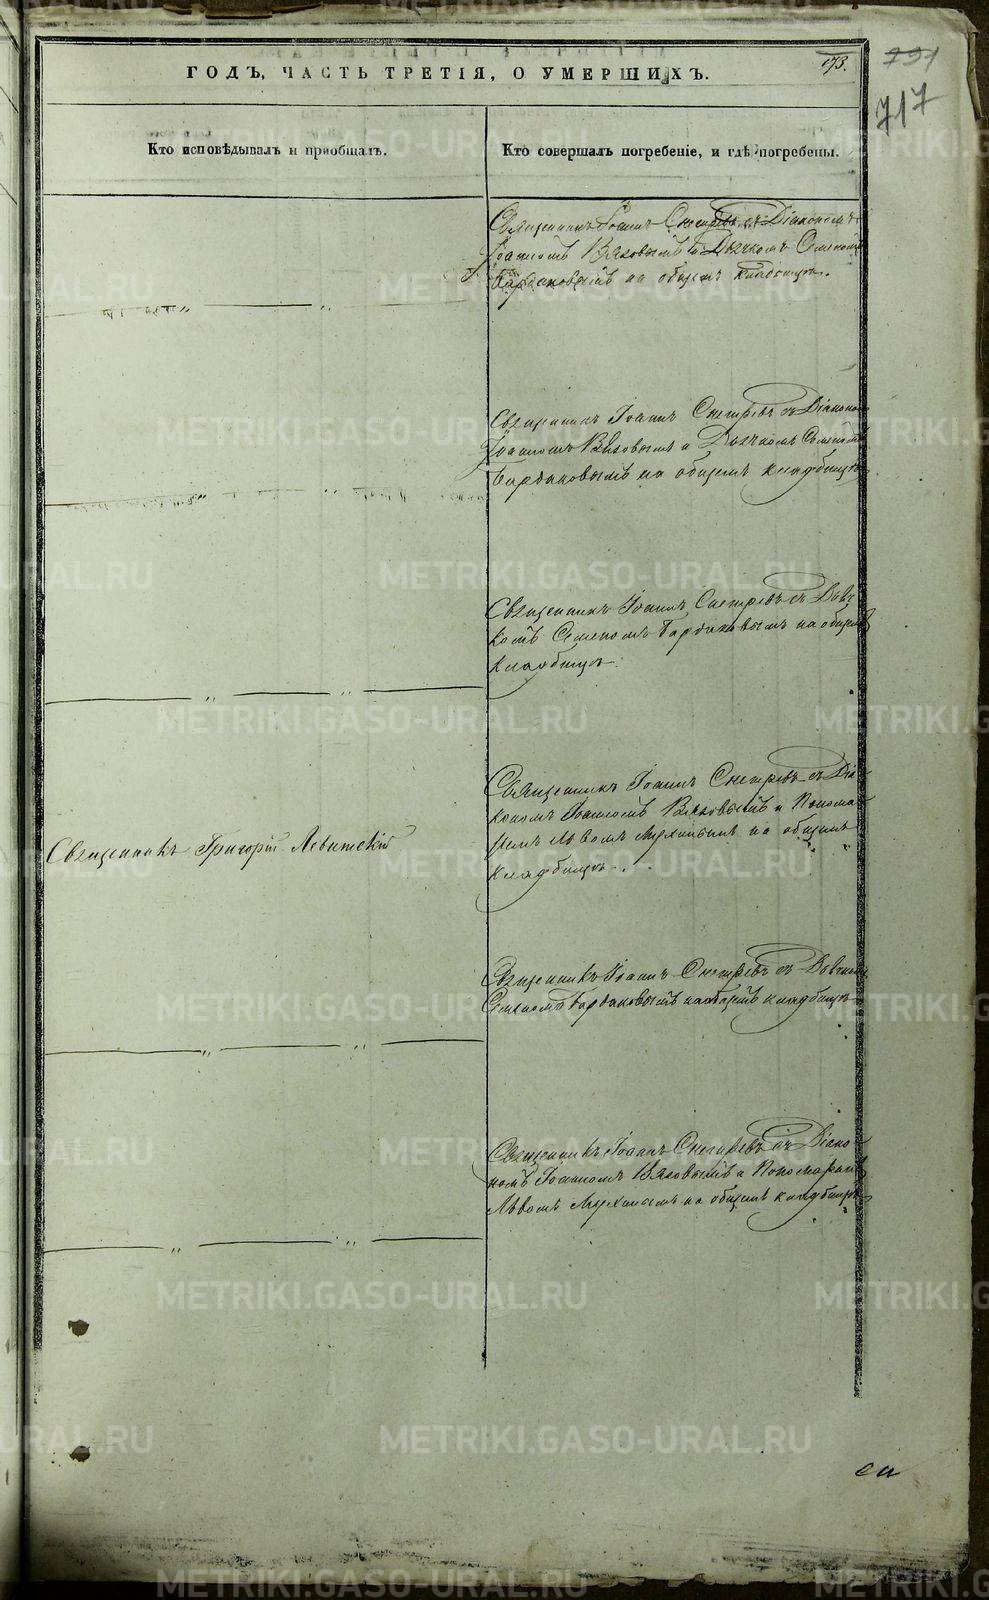 ГОДЪ, ЧАСТЬ ТРЕТІЯ, О УМЕРШИХЪ.
173.
791
717
Кто исповѣдывалъ и пріобщалъ.
Кто совершалъ погребеніе, и гдѣ погребены.
Священникъ Іоаннъ Снегиревъ съ Діакономъ
Іоанномъ Вяховымъ и Дьячкомъ Семеномъ
Бардаковымъ на общемъ кладбищѣ.
Священникъ Іоаннъ Снегиревъ съ Діакономъ
Іоанномъ Вяховымъ и Дьячкомъ Семеномъ
Бардаковымъ на общемъ кладбищѣ
Священникъ Іоаннъ Снегиревъ съ Дьяч
комъ Семеномъ Бардаковымъ на общемъ
кладбищѣ.
Священникъ Григорій Левитскій
Священникъ Іоаннъ Снегиревъ съ Діа
кономъ Іоанномъ Вяховымъ и Понома
ремъ Львомъ на общемъ
кладбищѣ.
Священникъ Іоаннъ Снегиревъ съ Дьячкомъ
Семеномъ Бардаковымъ на общемъ кладбищѣ
Священникъ Іоаннъ Снегиревъ съ Діако
номъ Іоанномъ Вяховымъ и Пономаремъ
Львомъ на общемъ кладбищѣ
METRIKI.GASO-URAL.RU